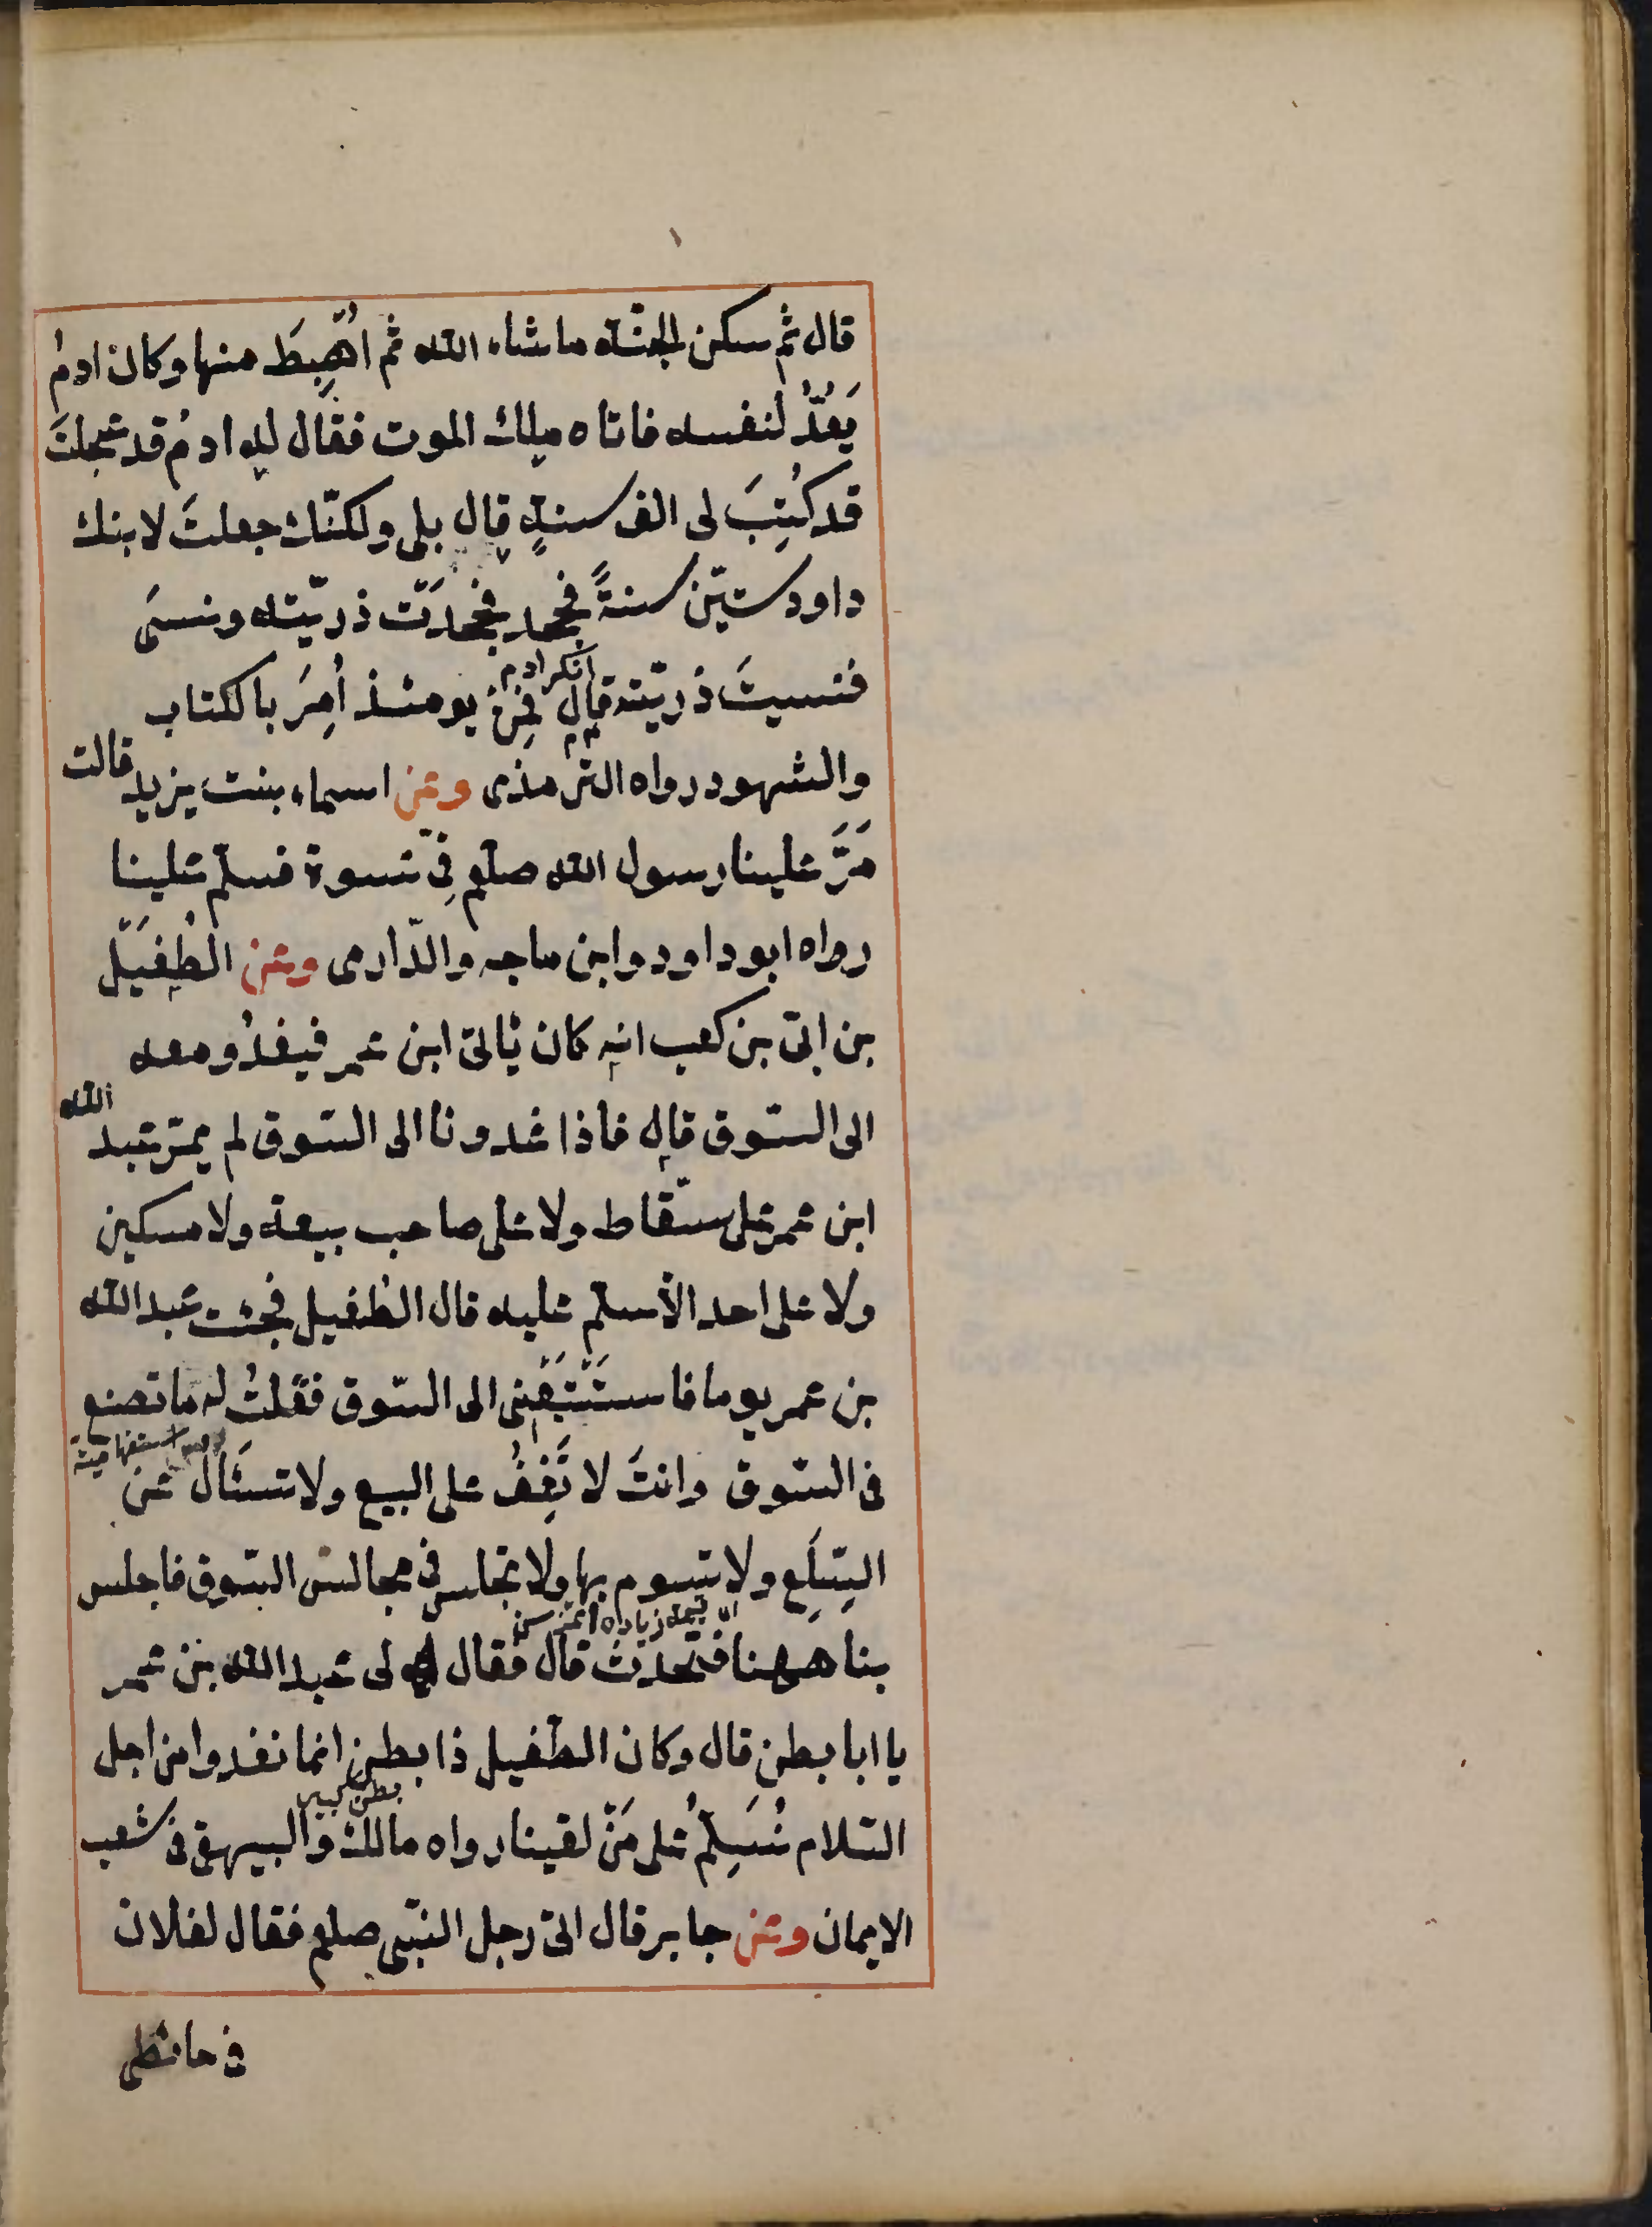 قال ثم سكن الجنّة ما شاء الله ثم اُهْبِطَ منها وكان ادمُ
يَعُدُّ لنفسه فاتاه ملك الموت فقال له ادمُ قد عجلتَ
قد كُتِبَ لى الف سنةٍ قال بلى ولكنّك جعلتَ لابنك
داود ستّين سنةً فجحد فجحدَتْ ذريّته ونسىَ
انكر ادم
فنسيتَ ذريّته قال فمِنْ يومئذ اُمِرَ بالكتاب
والشهود رواه الترمذى وعن اسماء بنت يزيد قالت
مَرَّ علينا رسول الله صلعم فِى نسوة فسلّم علينا
رواه ابو داود وابن ماجه والدّارمى وعن الطُفَيْل
بن ابىّ بن كعب انه كان يأتى ابن عمر فيغدُو معه
الى السّوق قال فاذا غدونا الى السّوق لم يمرّ عبد الله
ابن عمر على سقّاط ولا على صاحب بيعة ولا مسكين
ولا على احد الاّ سلّم عليه قال الطُفيل فجئت عبد الله
بن عمر يوما فاستَتْبَعَنى الى السّوق فقلتُ له ما تصنع
استفهامية
فى السّوق وانتَ لا تَقِفُ على البيع ولا تسئَال عن
السِلَعِ ولا تسوم بها ولا تجلس فى مجالس السّوق فاجلس
بنا ههنا فنتحدّث قال فقال لى عبد الله بن عمر
يا ابا بطن قال وكان الطّفيل ذا بطن انما نغدوا من اجل
بطن كبير
السّلام نُسَلِّمُ على مَنْ لقينا رواه مالك والبيهقى فى شعب
الايمان وعن جابر قال اتى رجل النّبى صلعم فقال لفلان
فى حائطى